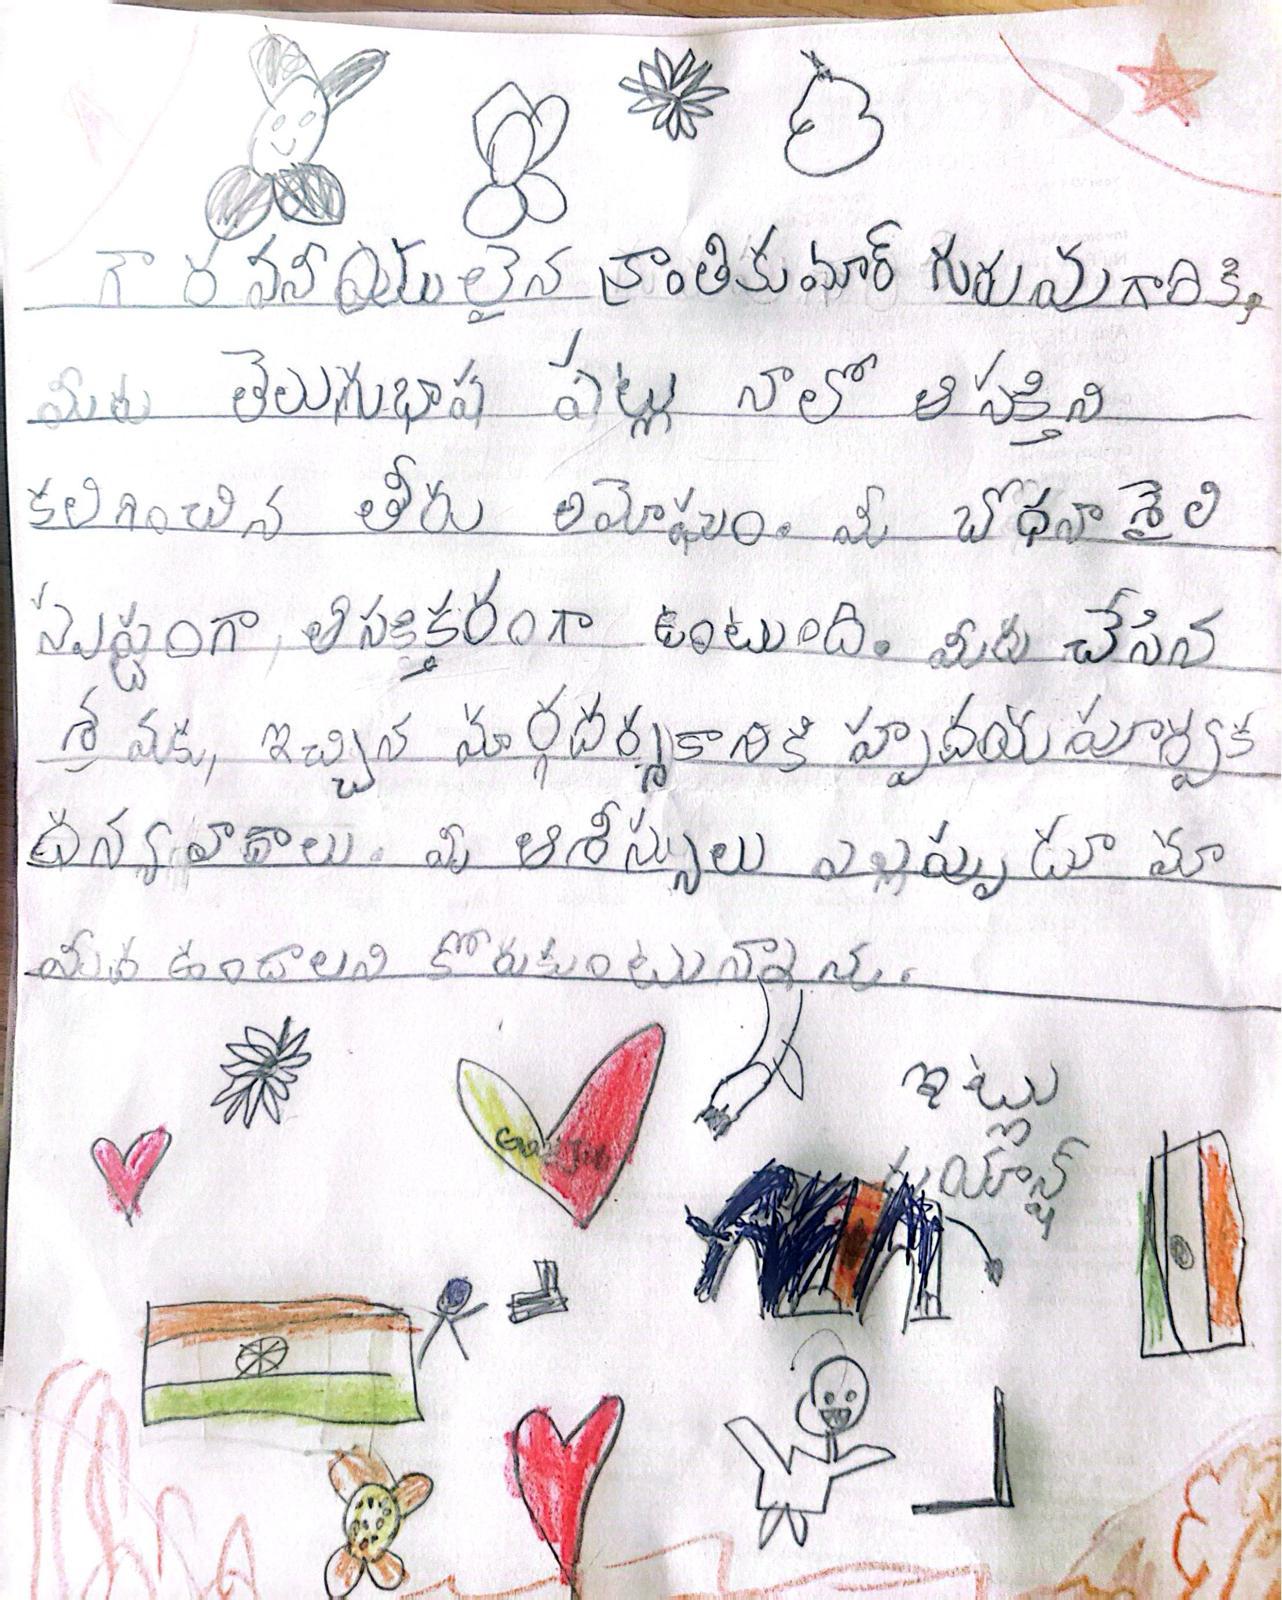 గౌరవనీయులైన క్రాంతికుమార్ గురువుగారికి,
మీరు తెలుగుభాష పట్ల నాలో ఆసక్తిని
కలిగించిన తీరు అమోఘం. మీ బోధనా శైలి
స్పష్టంగా, ఆసక్తికరంగా ఉంటుంది. మీరు చేసిన
శ్రమకు, ఇచ్చిన మార్గదర్శకానికి హృదయపూర్వక
ధన్యవాదాలు. మీ ఆశీస్సులు ఎల్లప్పుడూ మా
మీద ఉండాలని కోరుకుంటున్నాను.
ఇట్లు
Good Job